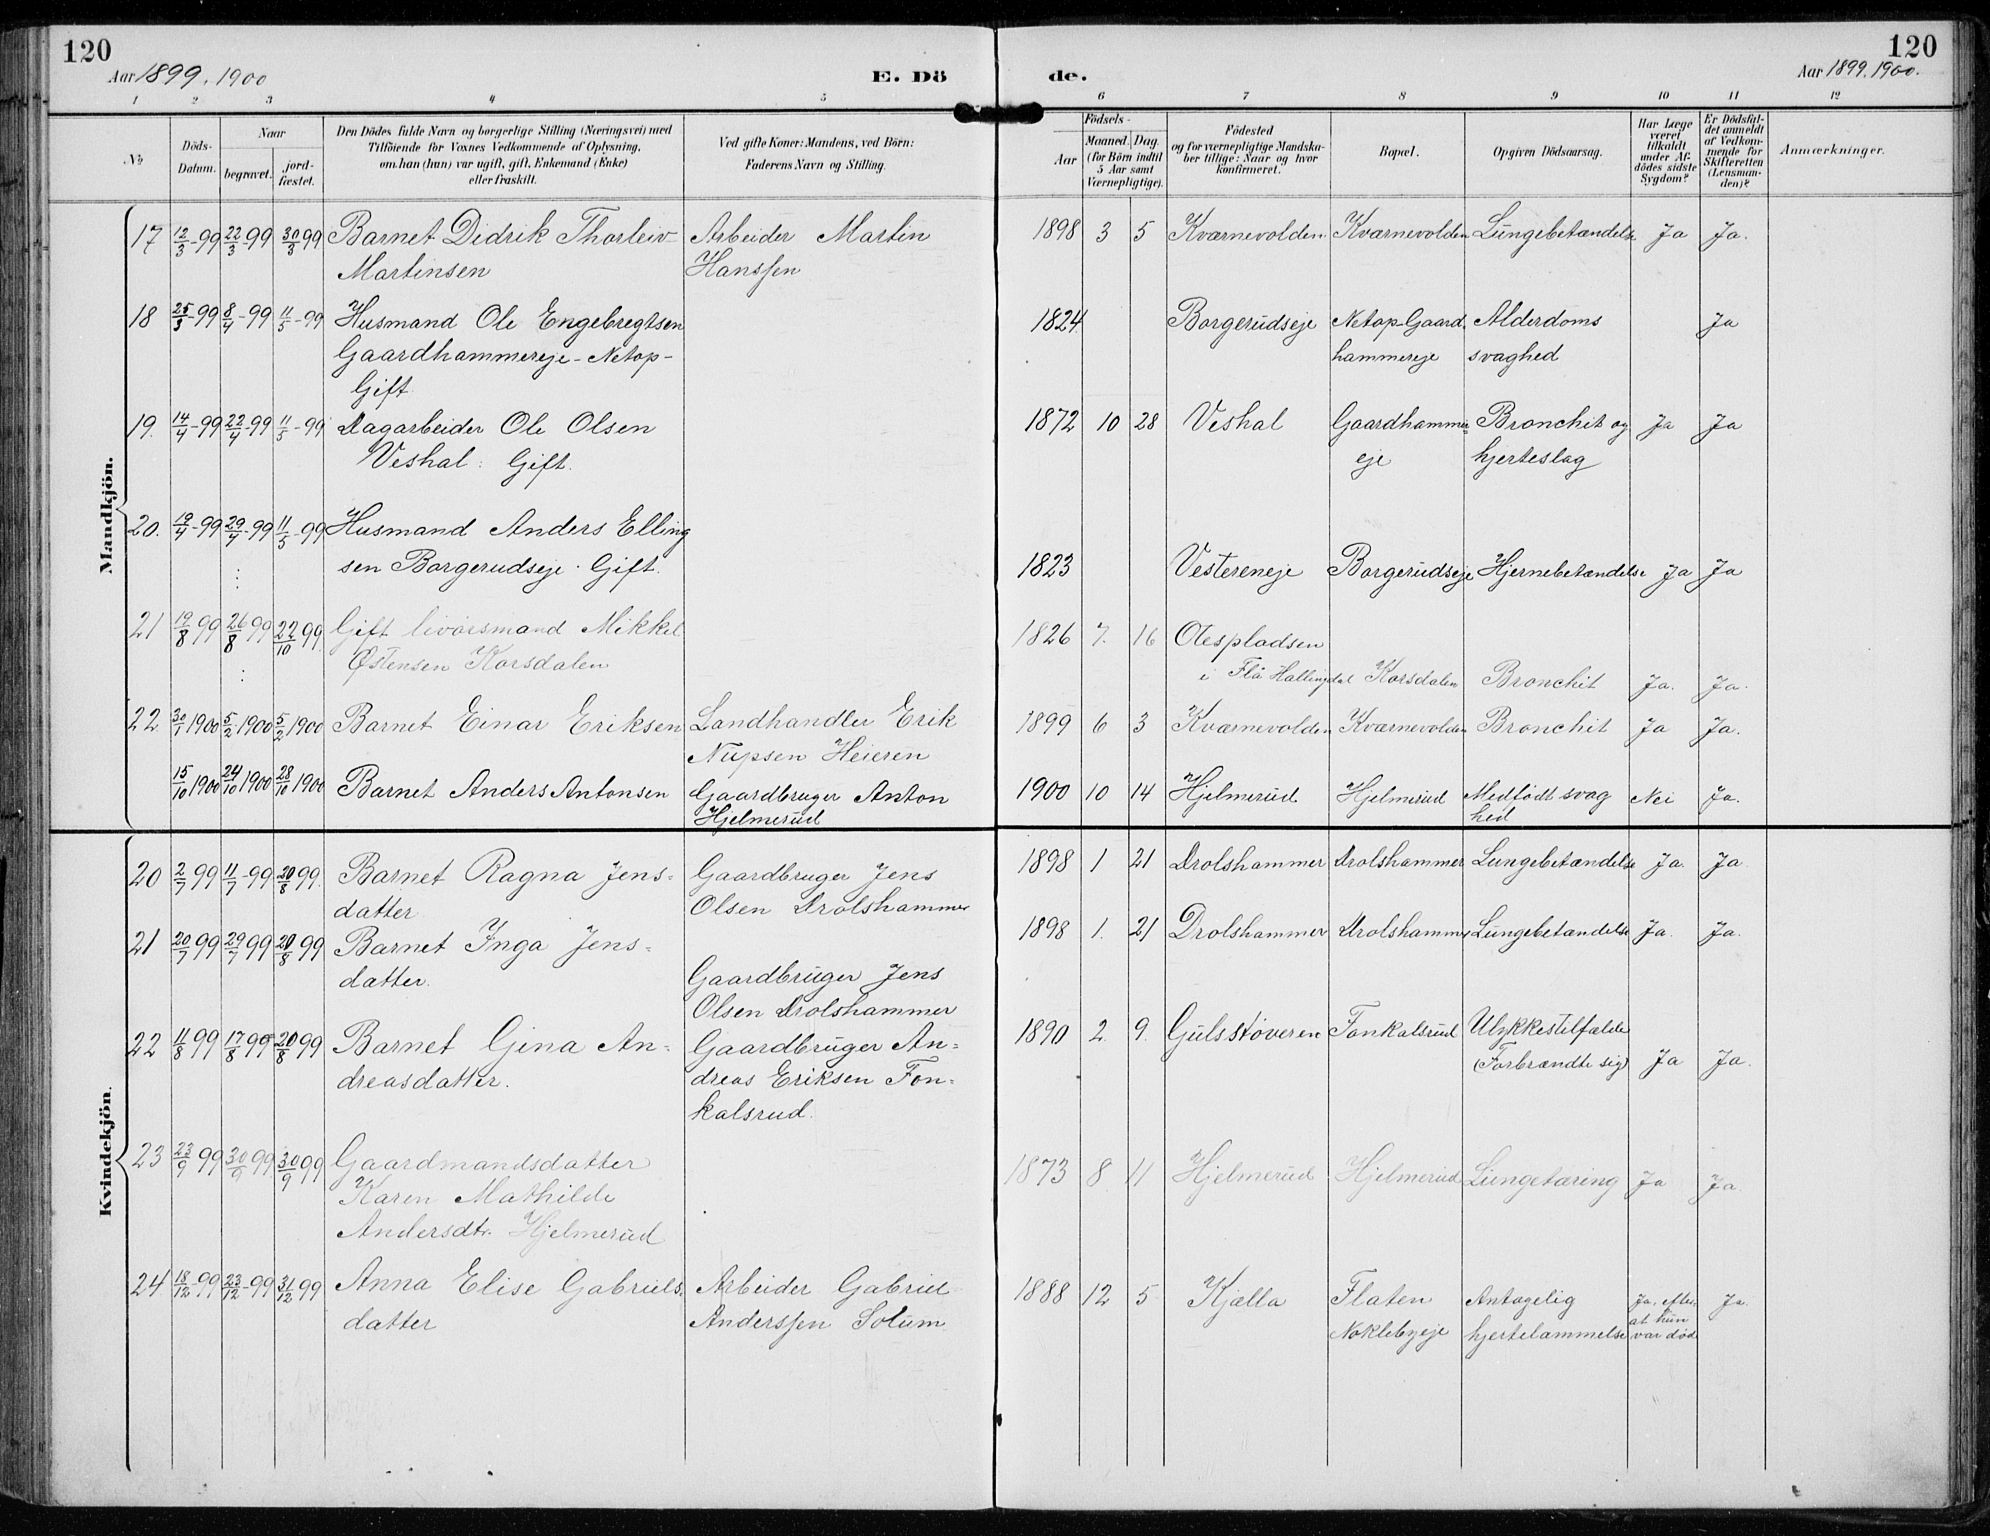 120
Aar 1899. 1900
E. Dö
de.
120
Aar 1899. 1900.
1 2 3 4 5 6 7 8 9 10 11 12
No
Döds-
Datum.
Naar
begravet.
jord-
fæstet.
Den Dödes fulde Navn og borgerlige Stilling (Næringsvei) med
Tilföiende for Voxnes Vedkommende af Oplysning,
om han (hun) var ugift, gift, Enkemand (Enke)
eller fraskilt.
Ved gifte Koner: Mandens, ved Börn:
Faderens Navn og Stilling.
Födsels-
Aar
Maaned. Dag.
(for Børn indtil
5 Aar samt
Værnepligtige).
Födested
og for værnepligtige Mandska-
ber tillige: Naar og hvor
konfirmeret.
Bopæl.
Opgiven Dödsaarsag.
Har Læge
været
tilkaldt
under Af-
dödes sidste
Sygdom?
Er Dödsfal-
det anmeldt
af Vedkom-
mende for
Skifteretten
(Lensman-
den)?
Anmærkninger.
Mandkjön.
17 12/3-99 22/3-99 30/3 99 Barnet Didrik Thorleiv Arbeider Martin 1898 3 5 Kværnevolden Kværnevolden Lungebetændelse Ja Ja.
Martinsen Hanssen
18 25/3-99 8/4-99 11/5-99 Husmand Ole Engebregtsen 1824 Borgerudseje Netop-Gaard Alderdoms Ja
Gaardhammereje-Netop- hammereje svaghed
Gift
19. 14/4-99 22/4-99 11/5-99 Dagarbeider Ole Olsen 1872 10 28 Veshal Gaardhammer= Bronchit og Ja Ja
Veshal: Gift. eje hjerteslag
20. 19/4-99 29/4-99 11/5-99 Husmand Anders Elling
sen Borgerudseje. Gift. 1823 Vestereneje Borgerudseje Hjernebetændelse Ja Ja
21 19/8 99 26/8 99 22/10 99. Gift livørsmand Mikkel 1826 7. 16 Olespladsen
Østensen Korsdalen i Flå Hallingdal Korsdalen Bronchit Ja. Ja.
22 30/1 1900 5/2 1900 5/2 1900 Barnet Einar Eriksen Landhandler Erik 1899 6 3 Kværnevolden Kværnevolden Bronchit Ja Ja.
Nupsen Heieren
15/10 1900 24/10 1900 28/10 1900 Barnet Anders Antonsen Gaardbruger Anton 1900 10 14 Hjelmerud Hjelmerud Medfødt svag Nei Ja.
Hjelmerud hed
Kvindekjön.
20 2/7 99 11/7-99 20/8 99. Barnet Ragna Jens- Gaardbruger Jens 1898 1 21 Drolshammer Drolshammer Lungebetændelse Ja. Ja.
datter Olsen Drolshammer
21 20/7 99 29/7 99 20/8 99 Barnet Inga Jens= 1898 1. 21 Drolshammer Drolshammer Lungebetændelse Ja. Ja.
datter. Gaardbruger Jens
Olsen Drolshammer
22 11/8 99 17/8-99 20/8 99 Barnet Gina An= Gaardbruger An= 1890 2. 9. Gulsstøveren Fonkalsrud Ulykkestilfælde
dreasdatter. dreas Eriksen Fon= (Forbrændte sig) Ja Ja.
kalsrud.
23 23/9 99 30/9 99. 30/9 99 Gaardmandsdatter 1873 8 11 Hjelmerud Hjelmerud Lungetæring Ja Ja
Karen Mathilde
Andersdtr. Hjelmerud
24 18/12-99 23/12-99 31/12 99 Anna Elise Gabriels. Arbeider Gabriel 1888 12 5 Kjælla Flaten Antagelig Ja, efter Ja
datter Anderssen Solum Noklebyeje hjertelammelse at hun
var død